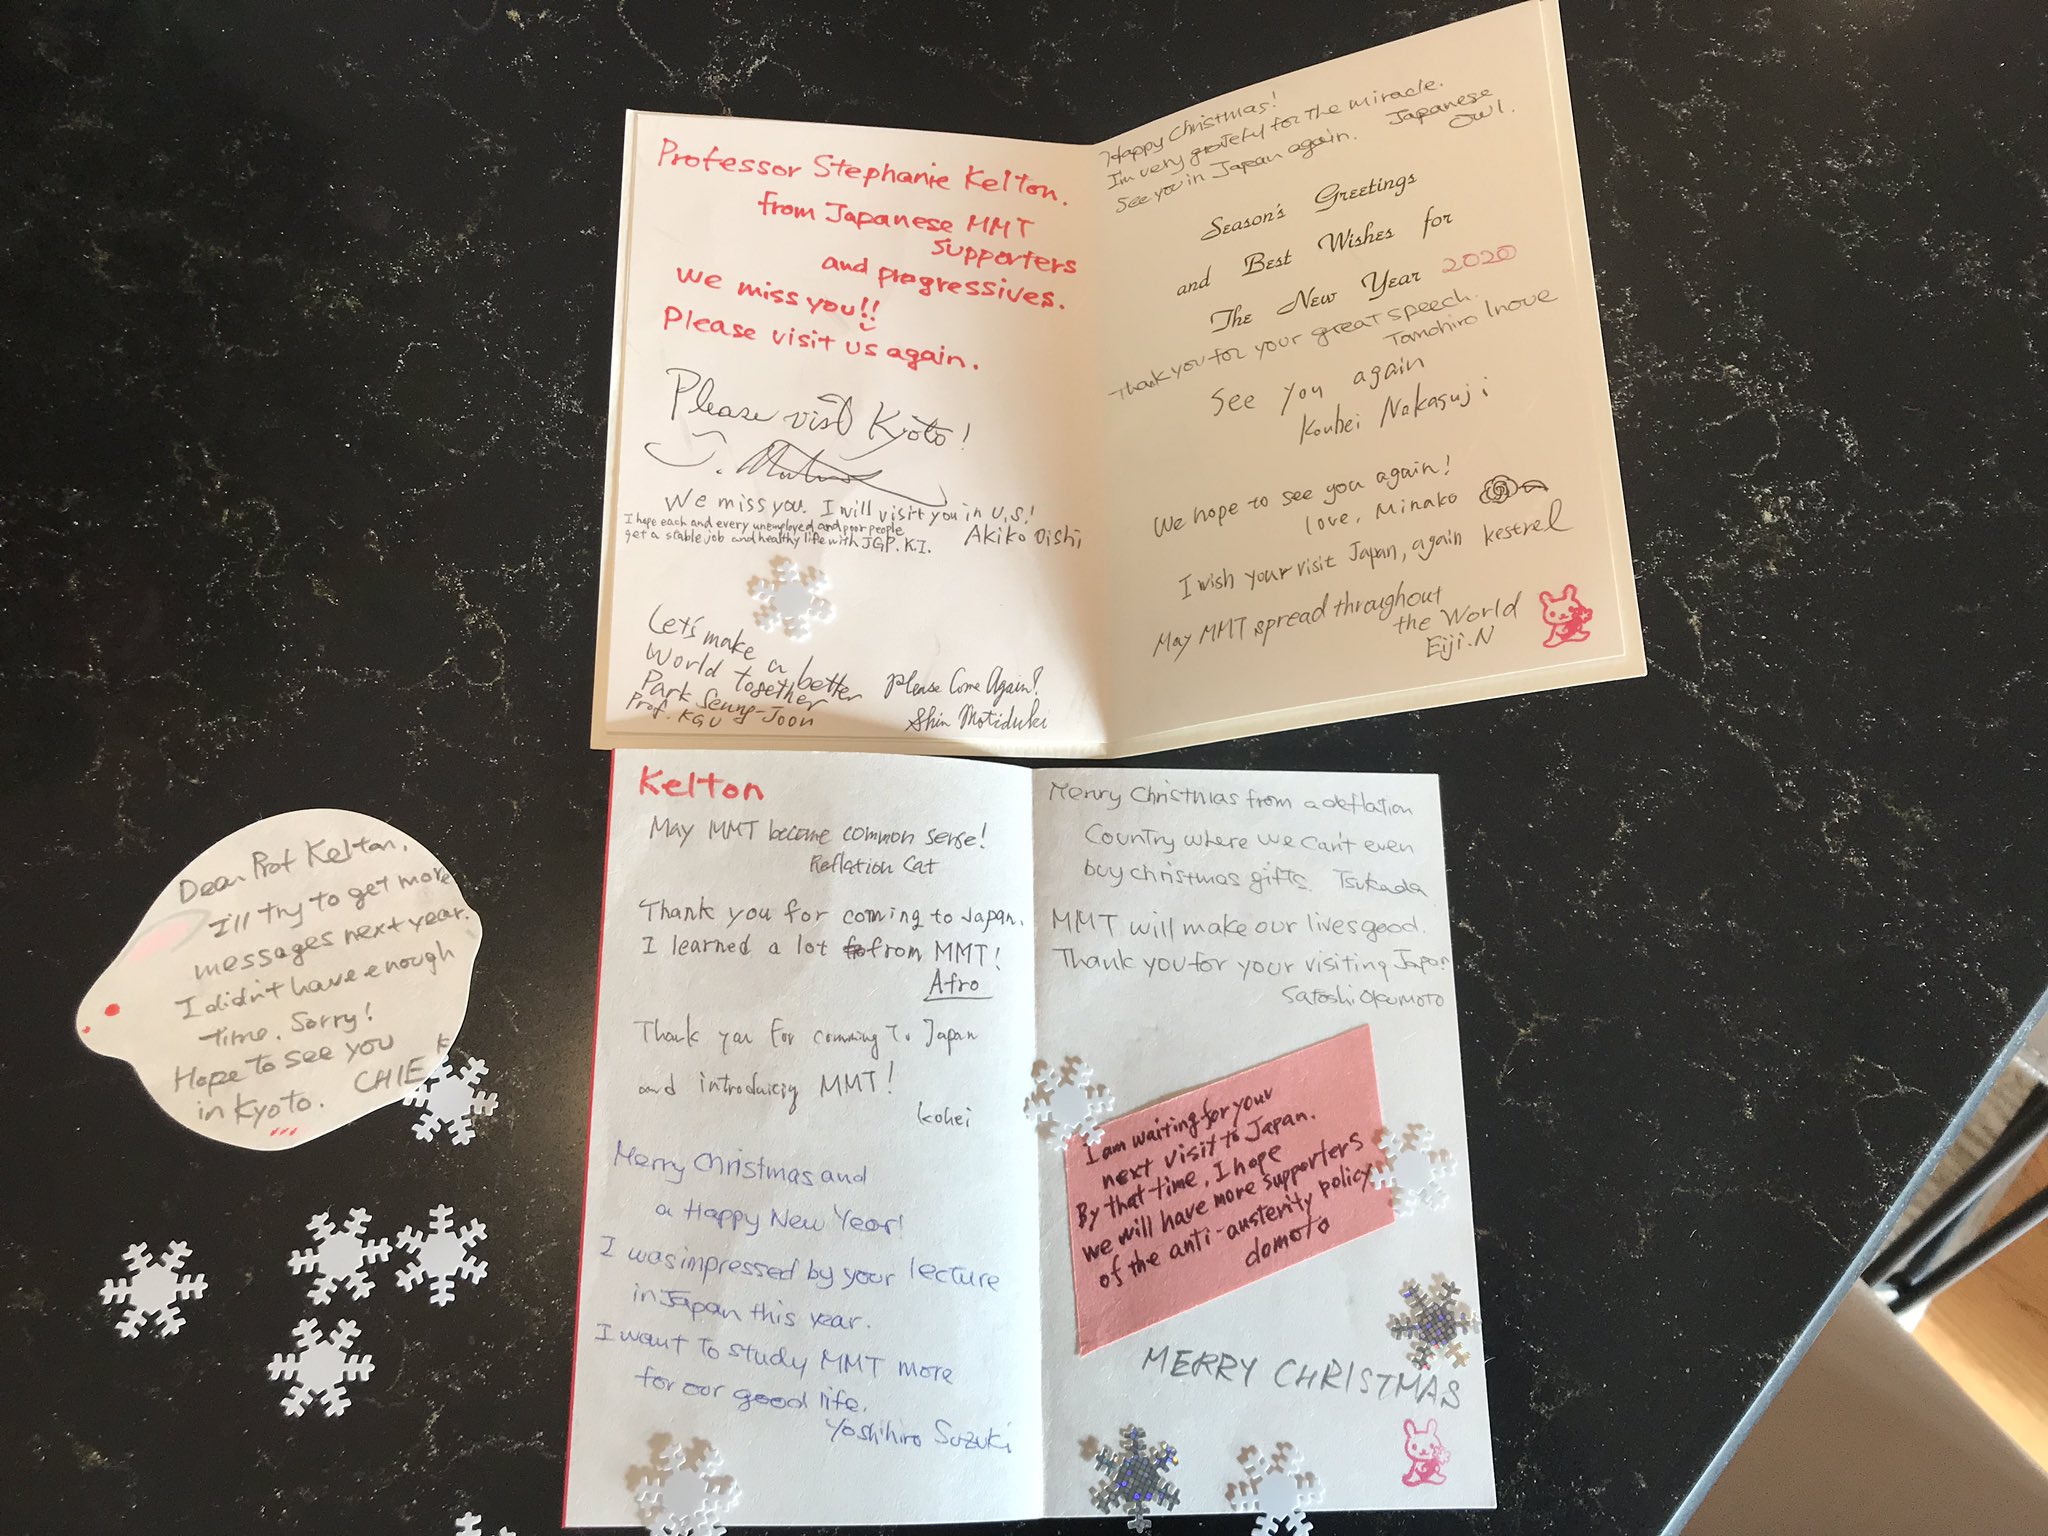 Professor Stephanie Kelton.
from Japanese MMT
supporters
and progressives.
We miss you!!
Please visit us again.
Please visit Kyoto!
We miss you. I will visit you in U.S!
Akiko Oishi
I hope each and every unemployed and poor people
get a stable job and healthy life with JGP. K.I.
Let's make a better
World together
Park Seung-Joon
Prof. KGU
Please Come Again!
Shin Motiduki
Happy Christmas!
I'm very grateful for the miracle.
See you in Japan again.
Japanese
Owl.
Season's Greetings
and Best Wishes for
The New Year 2020
Thank you for your great speech.
Tomohiro Inoue
See you again
Kouhei Nakasuji
We hope to see you again!
love, Minako
I wish your visit Japan, again kestrel
May MMT spread throughout
the World
Eiji.N
Dear Prof Kelton,
I'll try to get more
messages next year.
I didn't have enough
time. Sorry!
Hope to see you
in Kyoto. CHIE K
Kelton
May MMT become common sense!
Reflation Cat
Thank you for coming to Japan.
I learned a lot from MMT!
Afro
Thank you for comming To Japan
and introducig MMT!
kohei
Merry Christmas and
a Happy New Year!
I was impressed by your lecture
in Japan this year.
I want To study MMT more
for our good life.
Yoshihiro Suzuki
Merry Christmas from a deflation
Country where we can't even
buy christmas gifts. Tsukada
MMT will make our lives good.
Thank you for your visiting Japan
Satoshi Okumoto
I am waiting for your
next visit to Japan.
By that time, I hope
we will have more supporters
of the anti-austerity policy
domoto
MERRY CHRISTMAS